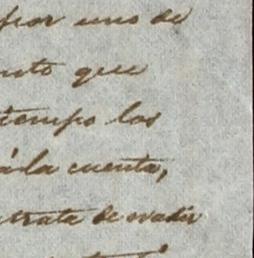 por uno de
que
tiempo los
á la cuenta,
trata de evadir